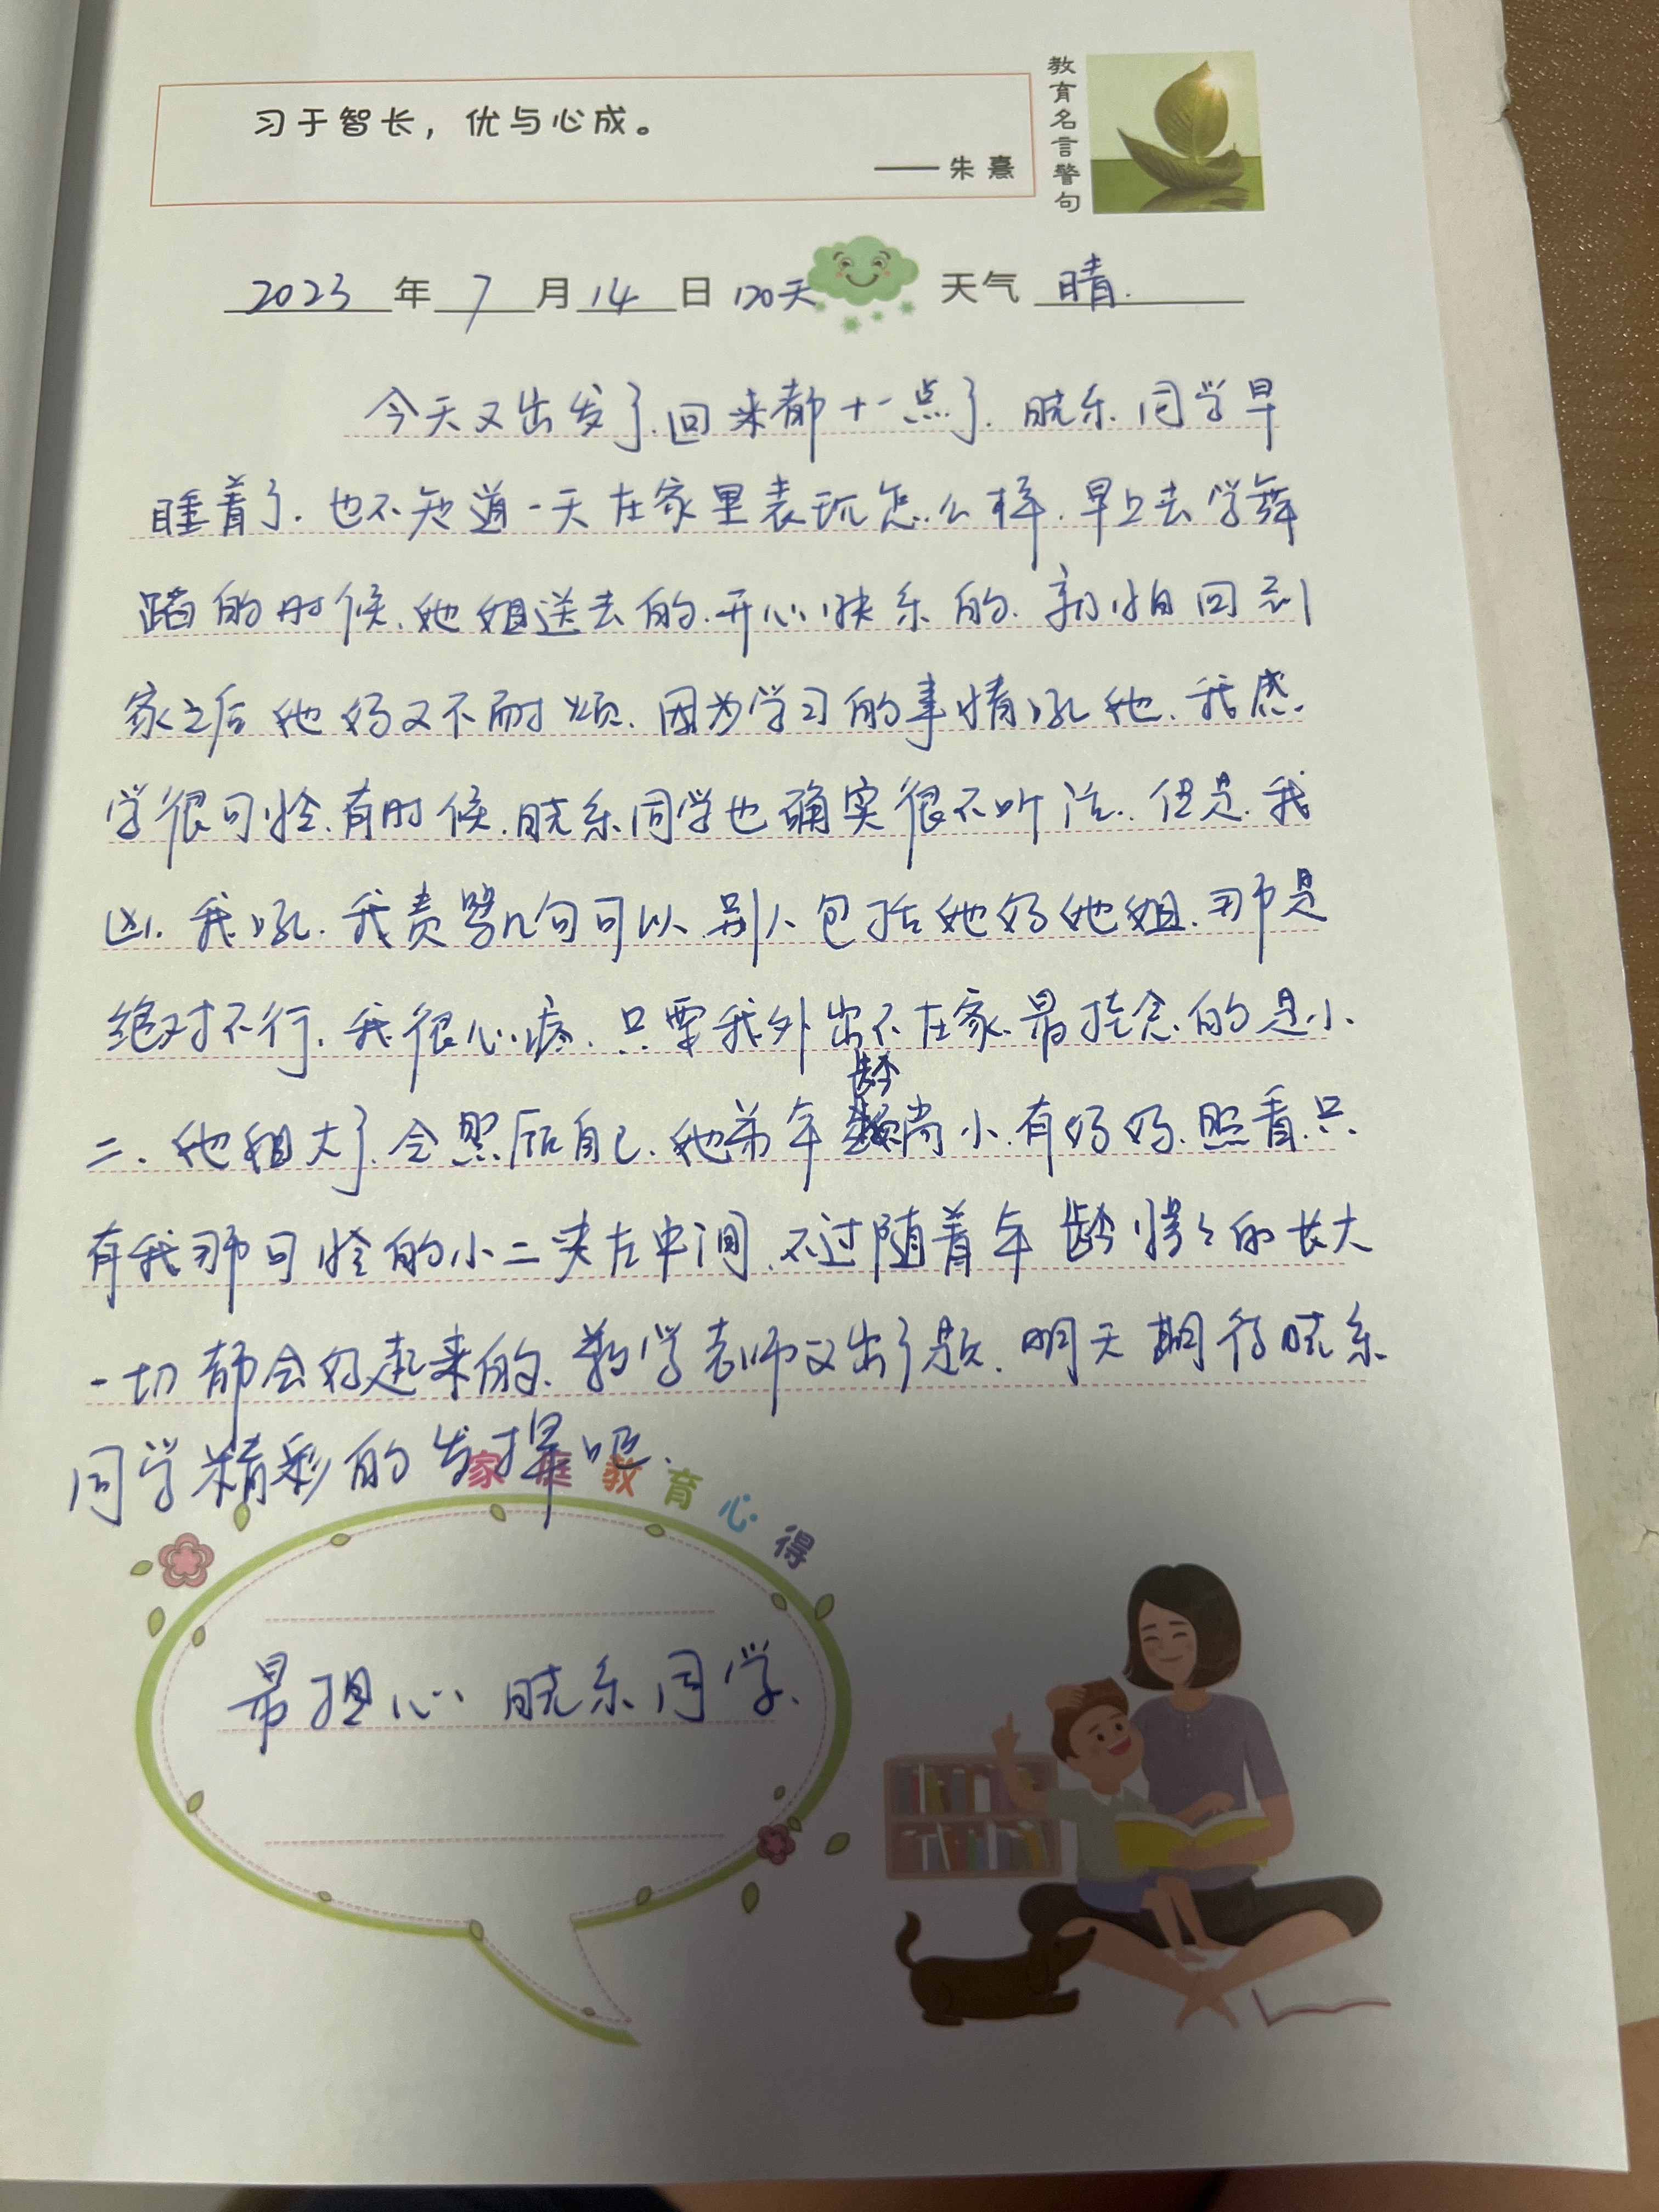 习于智长，优与心成。
——朱熹
教育名言警句
2023年7月14日 120天 天气 晴.
今天又出发了.回来都十一点了.晓乐.同学早
睡着了.也不知道一天在家里表现怎么样.早上去学舞
蹈的时候.她姐送去的.开心快乐的.就怕回到
家之后她妈又不耐烦.因为学习的事情吼她.我感
学很可怜.有时候.晓乐同学也确实很不听话.但是.我
凶.我吼.我责骂几句可以.别人包括她妈她姐.那是
绝对不行.我很心疼.只要我外出不在家.最挂念的是小
二.她姐大了.会照顾自己.她弟年龄尚小.有妈妈.照看.只
有我那可怜的小二夹在中间.不过随着年龄慢々的长大
一切都会好起来的.数学老师又出了题.明天期待晓乐
同学精彩的发挥吧.
家庭教育心得
最担心晓乐同学.